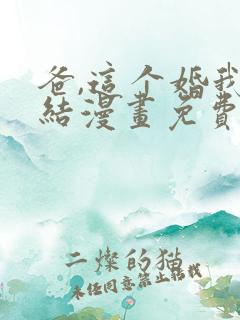 爸,這个婚我
結漫畫免費
二燦的猫
未经同意禁止转载